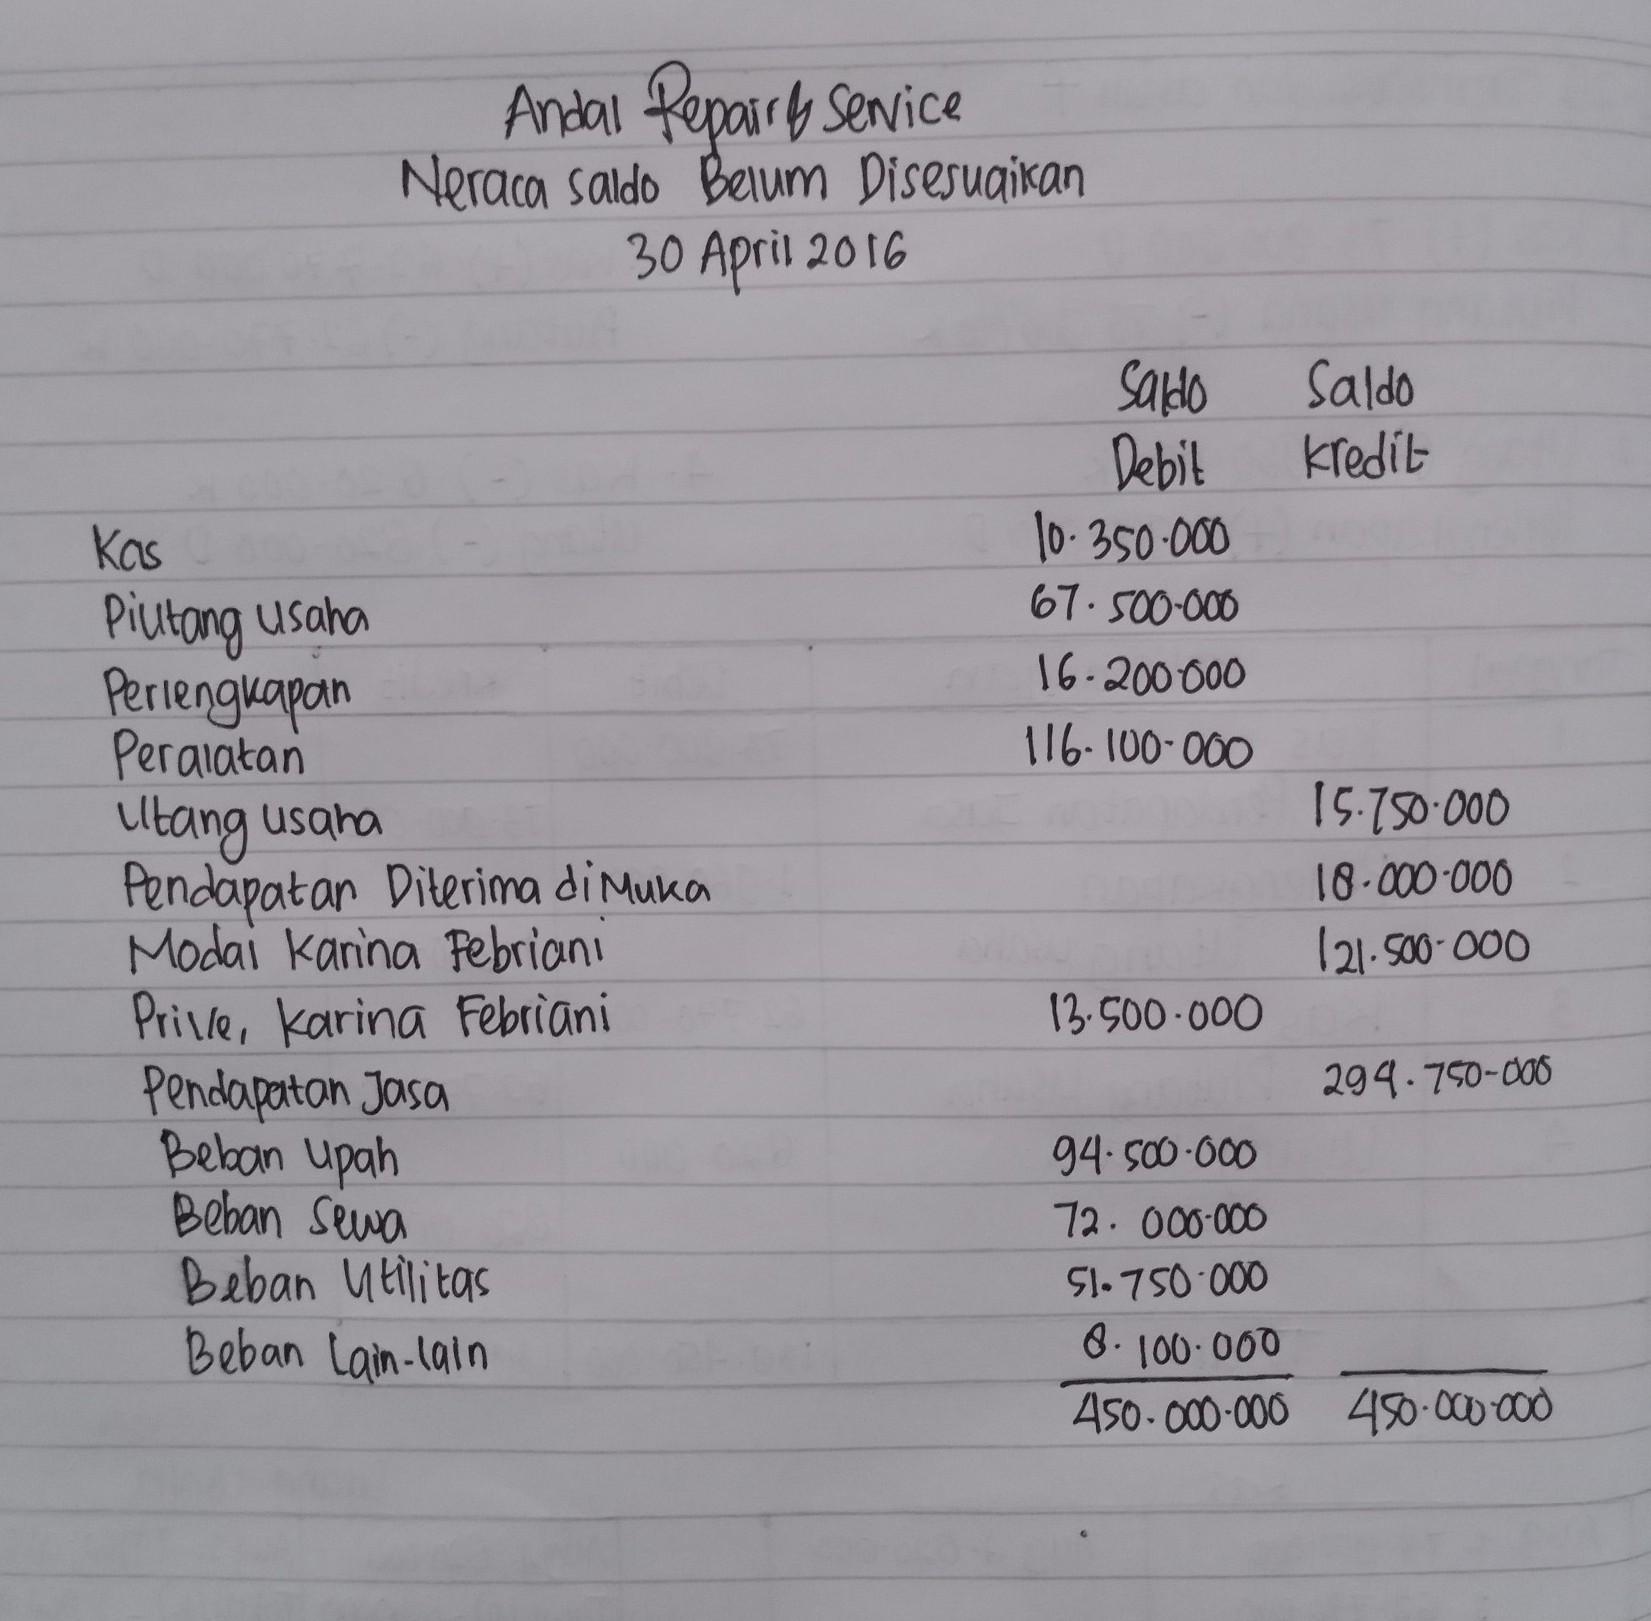 Andal Repair & Service
Neraca saldo Belum Disesuaikan
30 April 2016
Saldo Saldo
Debit kredit
Kas 10.350.000
Piutang usaha 67.500.000
Perlengkapan 16.200.000
Peralatan 116.100.000
Utang usaha 15.750.000
Pendapatan Diterima di Muka 18.000.000
Modal Karina Febriani 121.500.000
Prive, Karina Febriani 13.500.000
Pendapatan Jasa 294.750.000
Beban Upah 94.500.000
Beban Sewa 72.000.000
Beban Utilitas 51.750.000
Beban Lain-lain 8.100.000
450.000.000 450.000.000